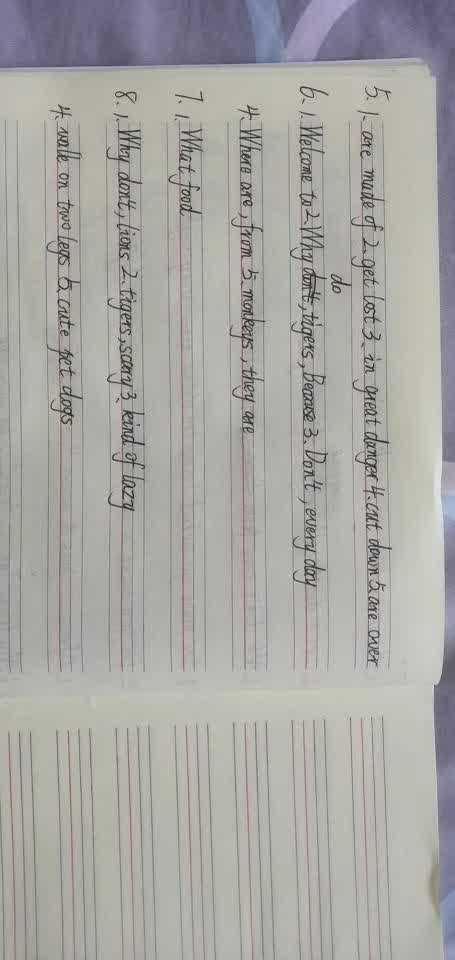 5. 1. are made of 2. get lost 3. in great danger 4. cut down 5. are over
do
6. 1. Welcome to 2. Why don't, tigers, Because 3. Don't, every day
4. Where are, from 5. monkeys, they are
7. 1. What food
8. 1. Why don't, lions 2. tigers, scary 3. kind of lazy
4. walk on two legs 5. cute pet dogs